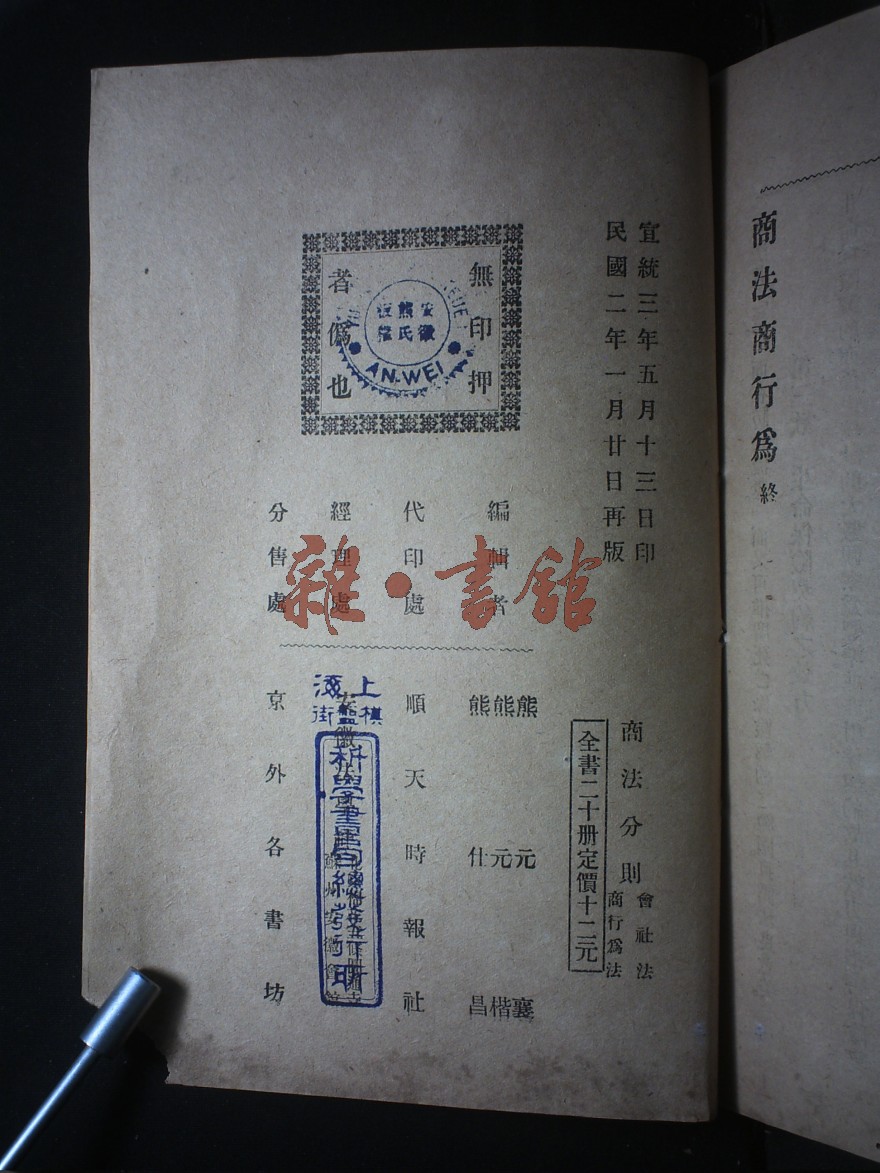 商法商行爲終
宣統三年五月十三日印
民國二年一月廿日再版
商法分則
會社法
商行爲法
全書二十册定價十二元
編輯者
熊元襄
熊元楷
熊仕昌
代印處
順天時報社
經理處
分售處
京外各書坊
無印押
者僞也
安徽
熊氏
AN-WEI
上海
棋盤街
科學書局總發行所
雜·書館